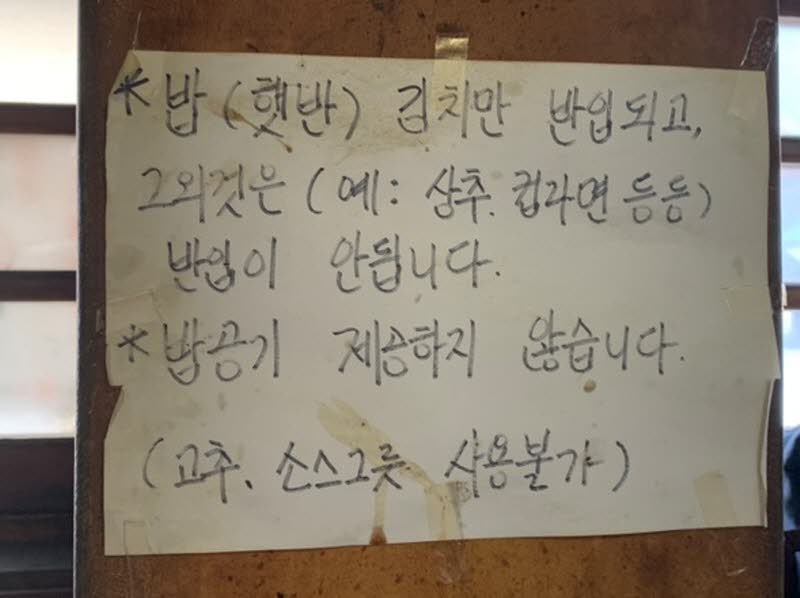 *밥(햇반) 김치만 반입되고,
그외것은(예: 상추. 컵라면 등등)
반입이 안됩니다.
*밥공기 제공하지 않습니다.
(고추、소스그릇 사용불가)